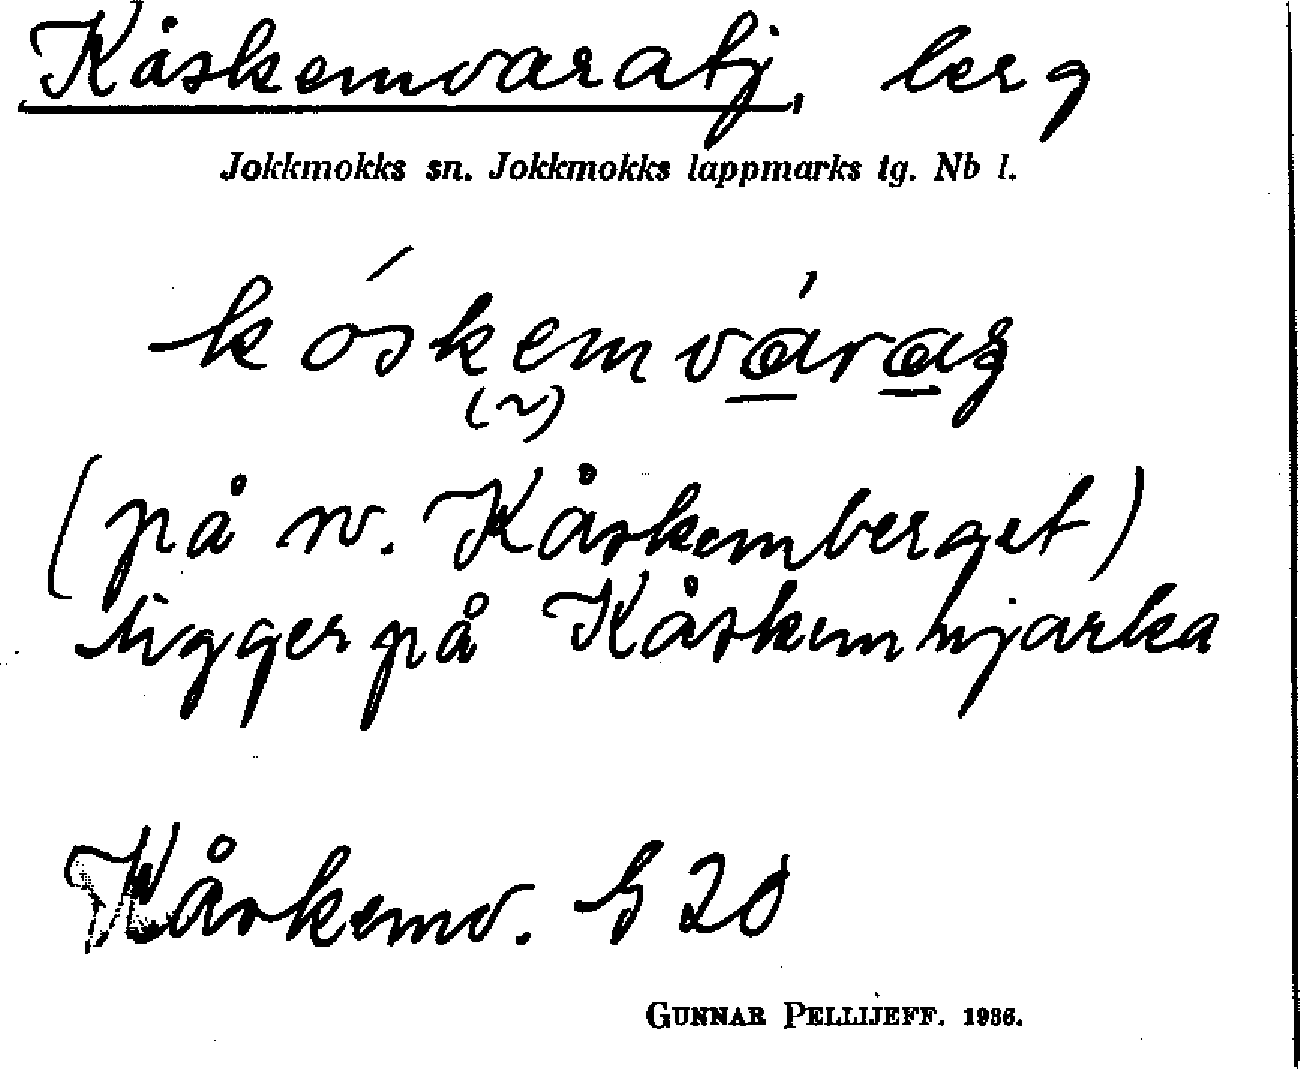 Kåskemvaratj, berg
Jokkmokks sn. Jokkmokks lappmarks tg. Nb l.
kóskemváraʒ
(~)
(på sv. Kåskemberget)
ligger på Kåskemnjarka
Kåskemv. G 20
GUNNAR PELLIJEFF. 1936.